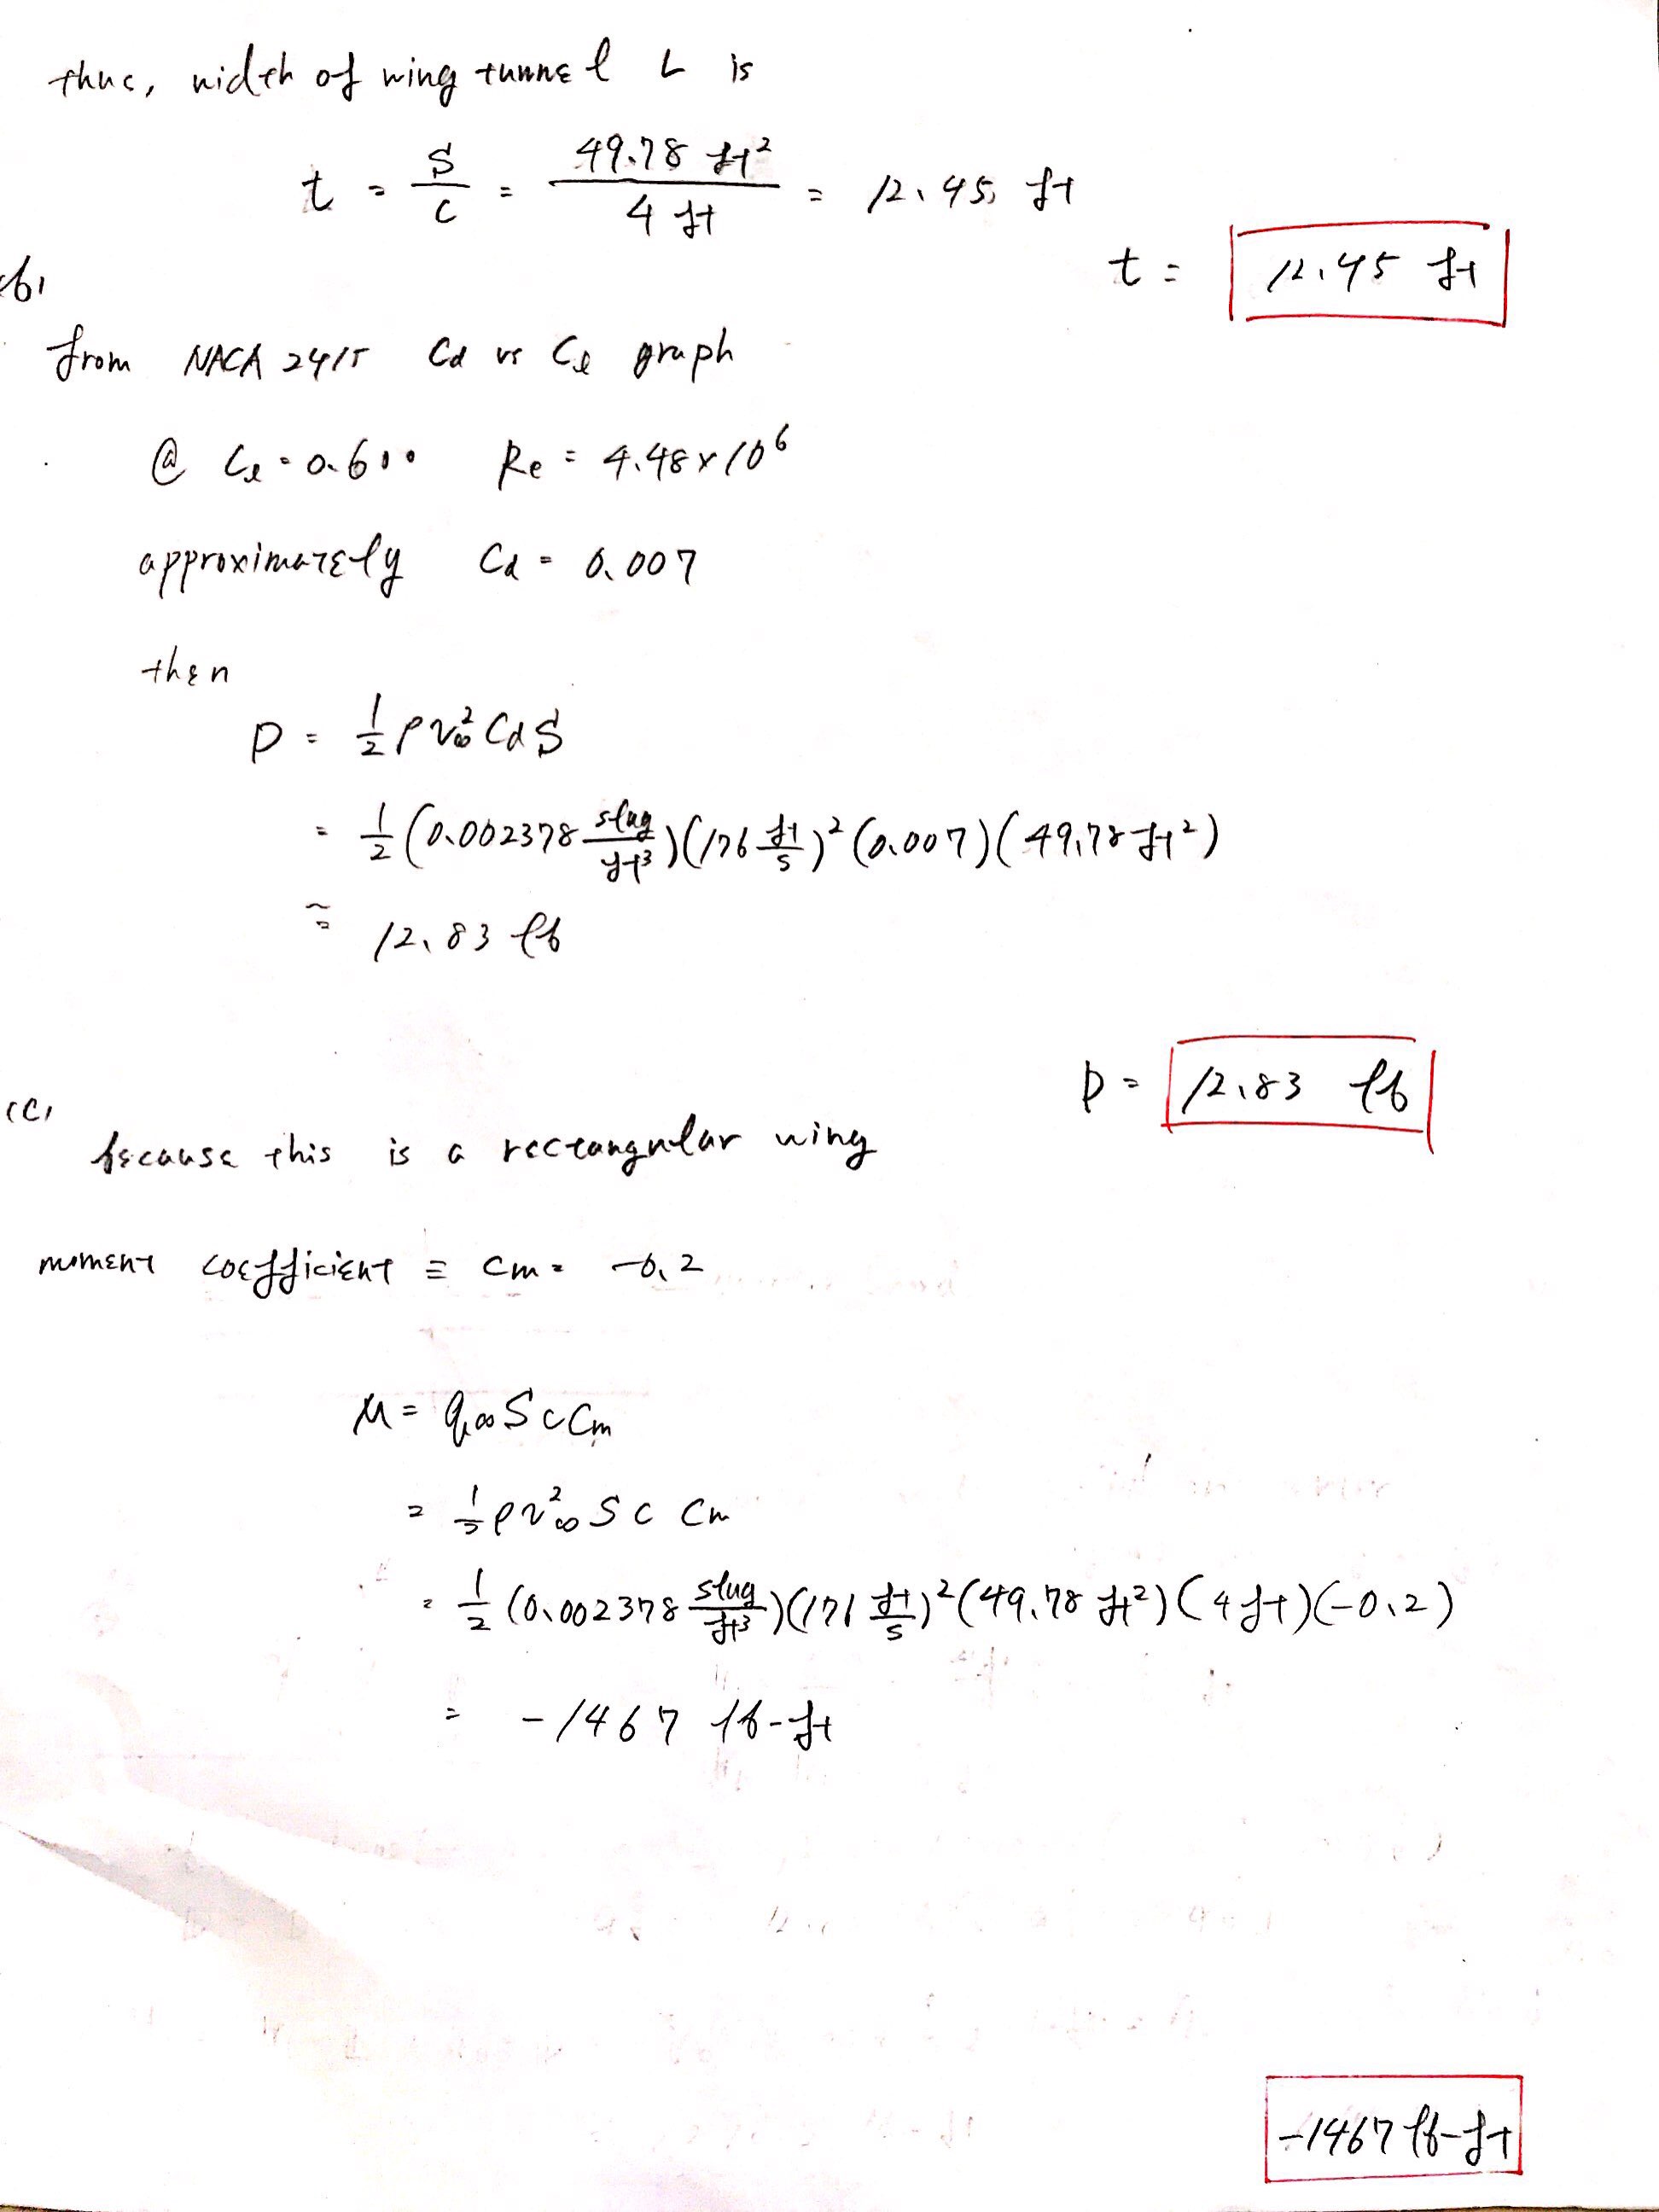 thus, width of wing tunnel L is
t = S/c = 49.78 ft²/4 ft = 12.45 ft
t = 12.45 ft
(b)
from NACA 2415 Cd vs Cl graph
@ Cl = 0.600 Re = 4.48 × 10⁶
approximately Cd = 0.007
then
D = 1/2 ρ v∞² Cd S
= 1/2 (0.002378 slug/ft³)(176 ft/s)² (0.007)(49.78 ft²)
≅ 12.83 lb
D = 12.83 lb
(c)
because this is a rectangular wing
moment coefficient ≡ Cm = -0.2
M = q∞ S c Cm
= 1/2 ρ v∞² S c Cm
= 1/2 (0.002378 slug/ft³)(171 ft/s)² (49.78 ft²)(4 ft)(-0.2)
= -1467 lb-ft
-1467 lb-ft